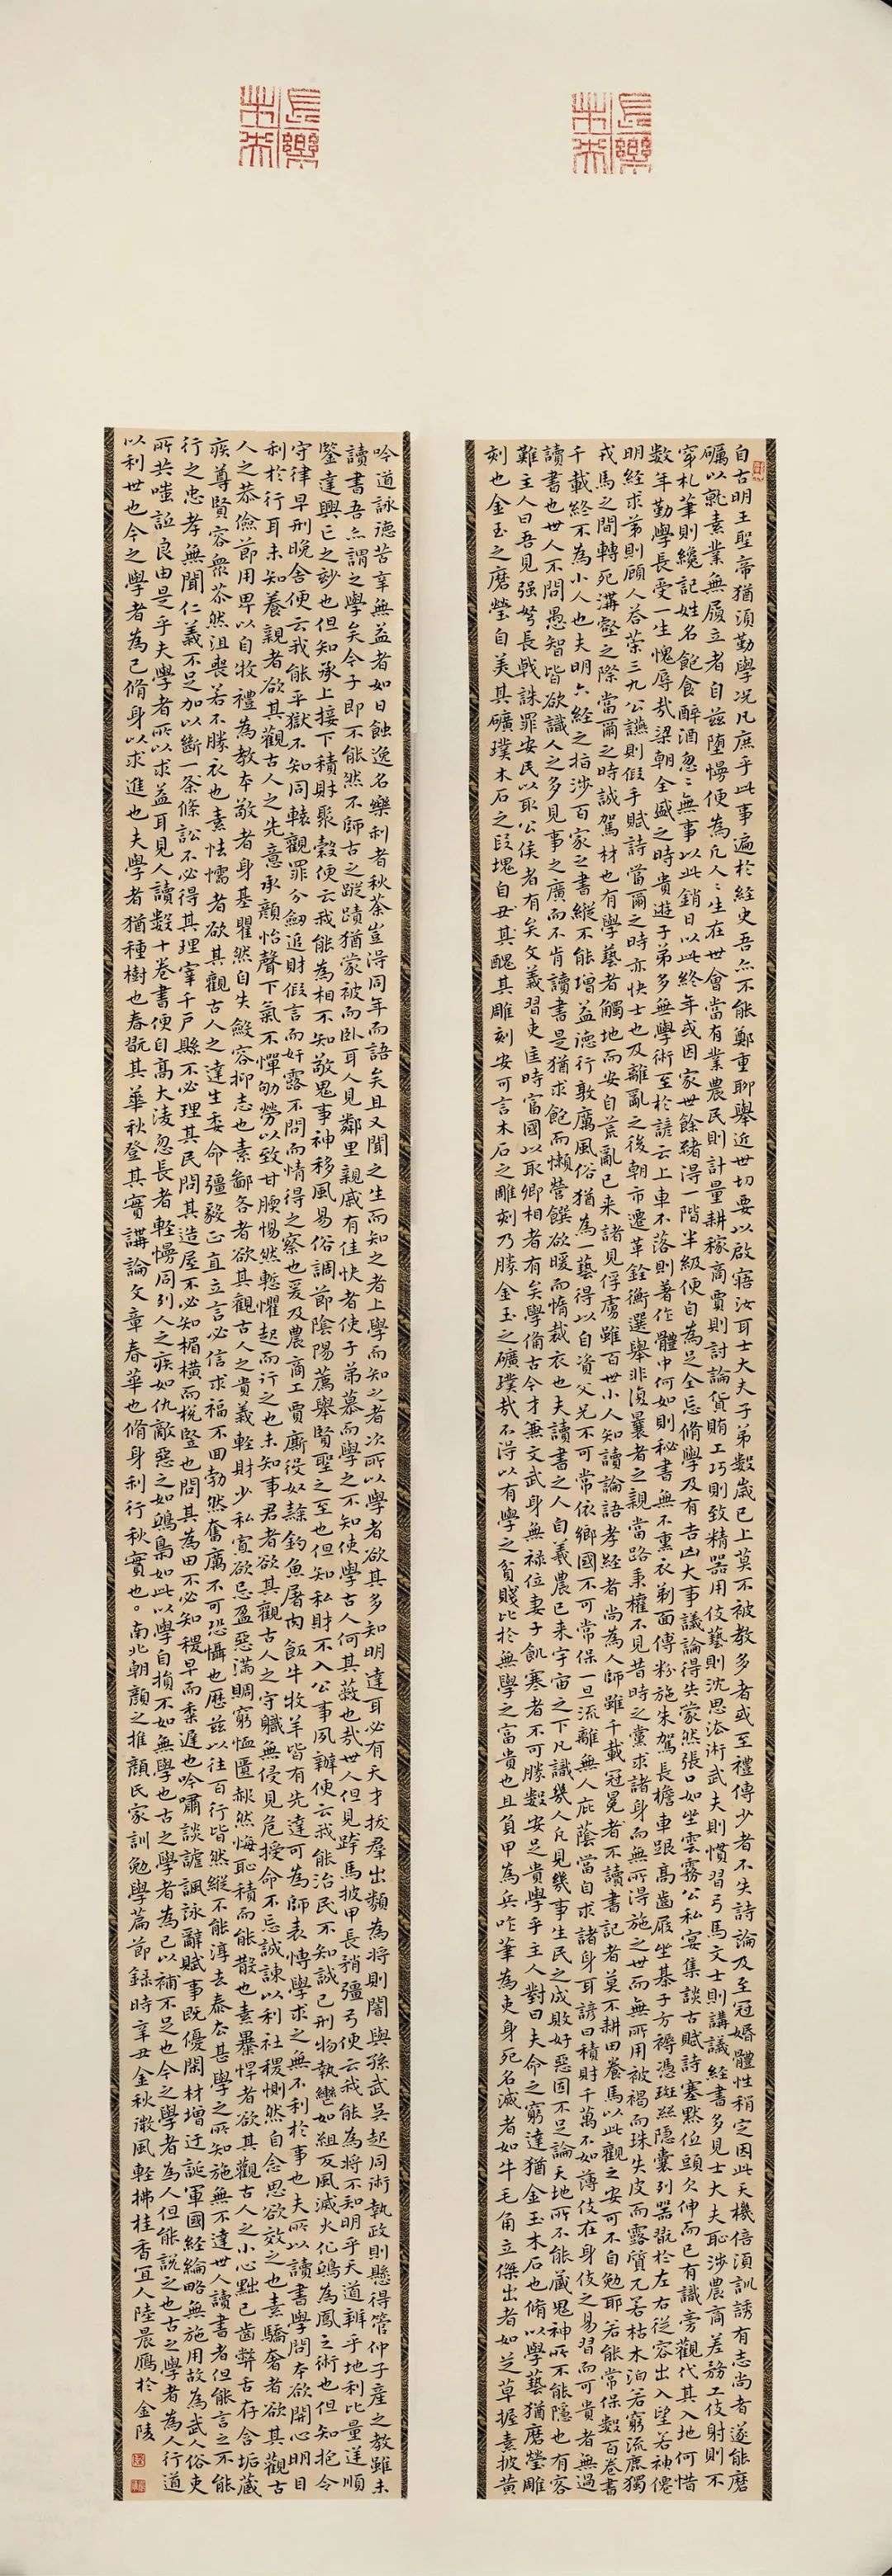 長樂未央
長樂未央
自古明王聖帝猶須勤學況凡庶乎此事遍於経史吾亦不能鄭重聊舉近世切要以啟寤汝耳士大夫子弟數歲已上莫不被教多者或至禮傳少者不失詩論及至冠婚體性稍定因此天機倍須訓誘有志尚者遂能磨
礪以就素業無履立者自茲墮慢便為凡人〻生在世會當有業農民則計量耕稼商賈則討論貨賄工巧則致精器用伎藝則沈思法術武夫則慣習弓馬文士則講議経書多見士大夫恥涉農商差務工伎射則不
穿札筆則纔記姓名飽食醉酒忽〻無事以此銷日以此終年或因家世餘緒得一階半級便自為足全忘脩學及有吉凶大事議論得失蒙然張口如坐雲霧公私宴集談古賦詩塞默低頭欠伸而已有識旁觀代其入地何惜
數年勤學長受一生愧辱哉梁朝全盛之時貴遊子弟多無學術至於諺云上車不落則著作體中何如則秘書無不熏衣剃面傅粉施朱駕長檐車跟高齒屐坐棊子方褥憑斑絲隱囊列器翫於左右從容出入望若神僊
明経求第則顧人答策三九公讌則假手賦詩當爾之時亦快士也及離亂之後朝市遷革銓衡選舉非復曩者之親當路秉權不見昔時之黨求諸身而無所得施之世而無所用被褐而珠失皮而露質兀若枯木泊若窮流鹿獨
戎馬之間轉死溝壑之際當爾之時誠駑材也有學藝者觸地而安自荒亂已来諸見俘虜雖百世小人知讀論語孝経者尚為人師雖千載冠冕者不讀書記者莫不耕田養馬以此觀之安可不自勉耶若能常保數百卷書
千載終不為小人也夫明六経之指涉百家之書縱不能增益德行敦厲風俗猶為一藝得以自資父兄不可常依鄉國不可常保一旦流離無人庇蔭當自求諸身耳諺曰積財千萬不如薄伎在身伎之易習而可貴者無過
讀書也世人不問愚智皆欲識人之多見事之廣而不肯讀書是猶求飽而懶營饌欲暖而惰裁衣也夫讀書之人自羲農已来宇宙之下凡識幾人凡見幾事生民之成敗好惡固不足論天地所不能藏鬼神所不能隱也有客
難主人曰吾見强弩長戟誅罪安民以取公侯者有矣文義習吏匡時富國以取卿相者有矣學備古今才兼文武身無禄位妻子飢寒者不可勝數安足貴學乎主人對曰夫命之窮達猶金玉木石也脩以學藝猶磨瑩雕
刻也金玉之磨瑩自美其礦璞木石之段塊自丑其醜其雕刻安可言木石之雕刻乃勝金玉之礦璞哉不得以有學之貧賤比於無學之富貴也且負甲為兵咋筆為吏身死名滅者如牛毛角立傑出者如芝草握素披黄
吟道詠德苦辛無益者如日蝕逸名樂利者秋荼豈得同年而語矣且又聞之生而知之者上學而知之者次所以學者欲其多知明達耳必有天才拔羣出類為將則闇與孫武吳起同術執政則懸得管仲子產之教雖未
讀書吾亦謂之學矣今子即不能然不師古之蹤蹟猶蒙被而卧耳人見鄰里親戚有佳快者使子弟慕而學之不知使學古人何其蔽也哉世人但見跨馬披甲長矟彊弓便云我能為將不知明乎天道辨乎地利比量逆順
鑒達興亡之妙也但知承上接下積財聚穀便云我能為相不知敬鬼事神移風易俗調節陰陽薦舉賢聖之至也但知私財不入公事夙辦便云我能治民不知誠己刑物執轡如組反風滅火化鴟為鳳之術也但知抱令
守律早刑晚舍便云我能平獄不知同轅觀罪分劔追財假言而奸露不問而情得之察也爰及農商工賈廝役奴隸釣魚屠肉飯牛牧羊皆有先達可為師表博學求之無不利於事也夫所以讀書學問本欲開心明目
利於行耳未知養親者欲其觀古人之先意承顏怡聲下氣不憚劬勞以致甘腝惕然慙懼起而行之也未知事君者欲其觀古人之守職無侵見危授命不忘誠諫以利社稷惻然自念思欲效之也素驕奢者欲其觀古
人之恭儉節用卑以自牧禮為教本敬者身基瞿然自失斂容抑志也素鄙吝者欲其觀古人之貴義輕財少私寡欲忌盈惡滿賙窮恤匱赧然悔恥積而能散也素暴悍者欲其觀古人之小心黜己齒弊舌存含垢藏
疾尊賢容衆苶然沮喪若不勝衣也素怯懦者欲其觀古人之達生委命彊毅正直立言必信求福不回勃然奮厲不可恐懾也歷茲以往百行皆然縱不能淳去泰去甚學之所知施無不達世人讀書者但能言之不能
行之忠孝無聞仁義不足加以斷一条條訟不必得其理宰千戶縣不必理其民問其造屋不必知楣橫而梲豎也問其為田不必知稷早而黍遲也吟嘯談謔諷詠辭賦事既優閑材增迂誕軍國経綸略無施用故為武人俗吏
所共嗤詆良由是乎夫學者所以求益耳見人讀數十卷書便自高大淩忽長者輕慢同列人之疾如仇敵惡之如鴟梟如此以學自損不如無學也古之學者為己以補不足也今之學者為人但能說之也古之學者為人行道
以利世也今之學者為己脩身以求進也夫學者猶種樹也春翫其華秋登其實講論文章春華也脩身利行秋實也。南北朝顏之推顏氏家訓勉學篇節錄時辛丑金秋微風輕拂桂香宜人陸晨鷹於金陵